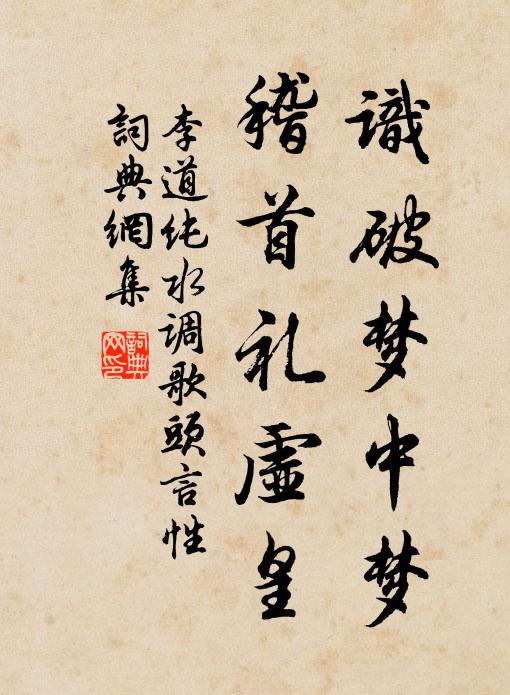 識破梦中梦
稽首礼虛皇
李道纯水调歌頭言性
詞典網集
詞典網印